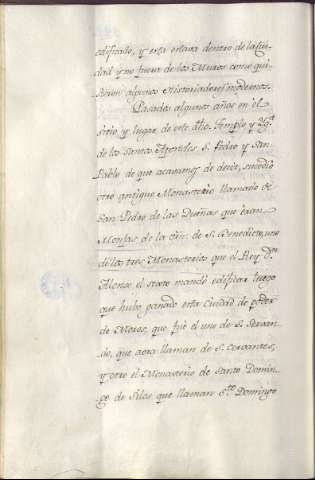 edificado, y esta estava dentro de la Ciu-
dad y no fuera de los Muros como qui-
sieron algunos Historiadores modernos.
Pasados algunos años en el
sitio y lugar de este dho. Templo y Ygª.
de los Santos Apostoles S. Pedro y San
Pablo de que acavamos de decir, sucedio
otro antiguo Monasterio llamado de
San Pedro de las Dueñas que eran
Monjas de la Orn. de S. Benedicto, uno
de los tres Monasterios que el Rey Dn.
Alonso el sexto mandó edificar luego
que hubo ganado esta Ciudad de poder
de Moros, que fué el uno de S. Servan-
do, que aora llaman de S. Cervantes,
y otro el Monasterio de Santo Domin-
go de Silos que llaman Sto. Domingo